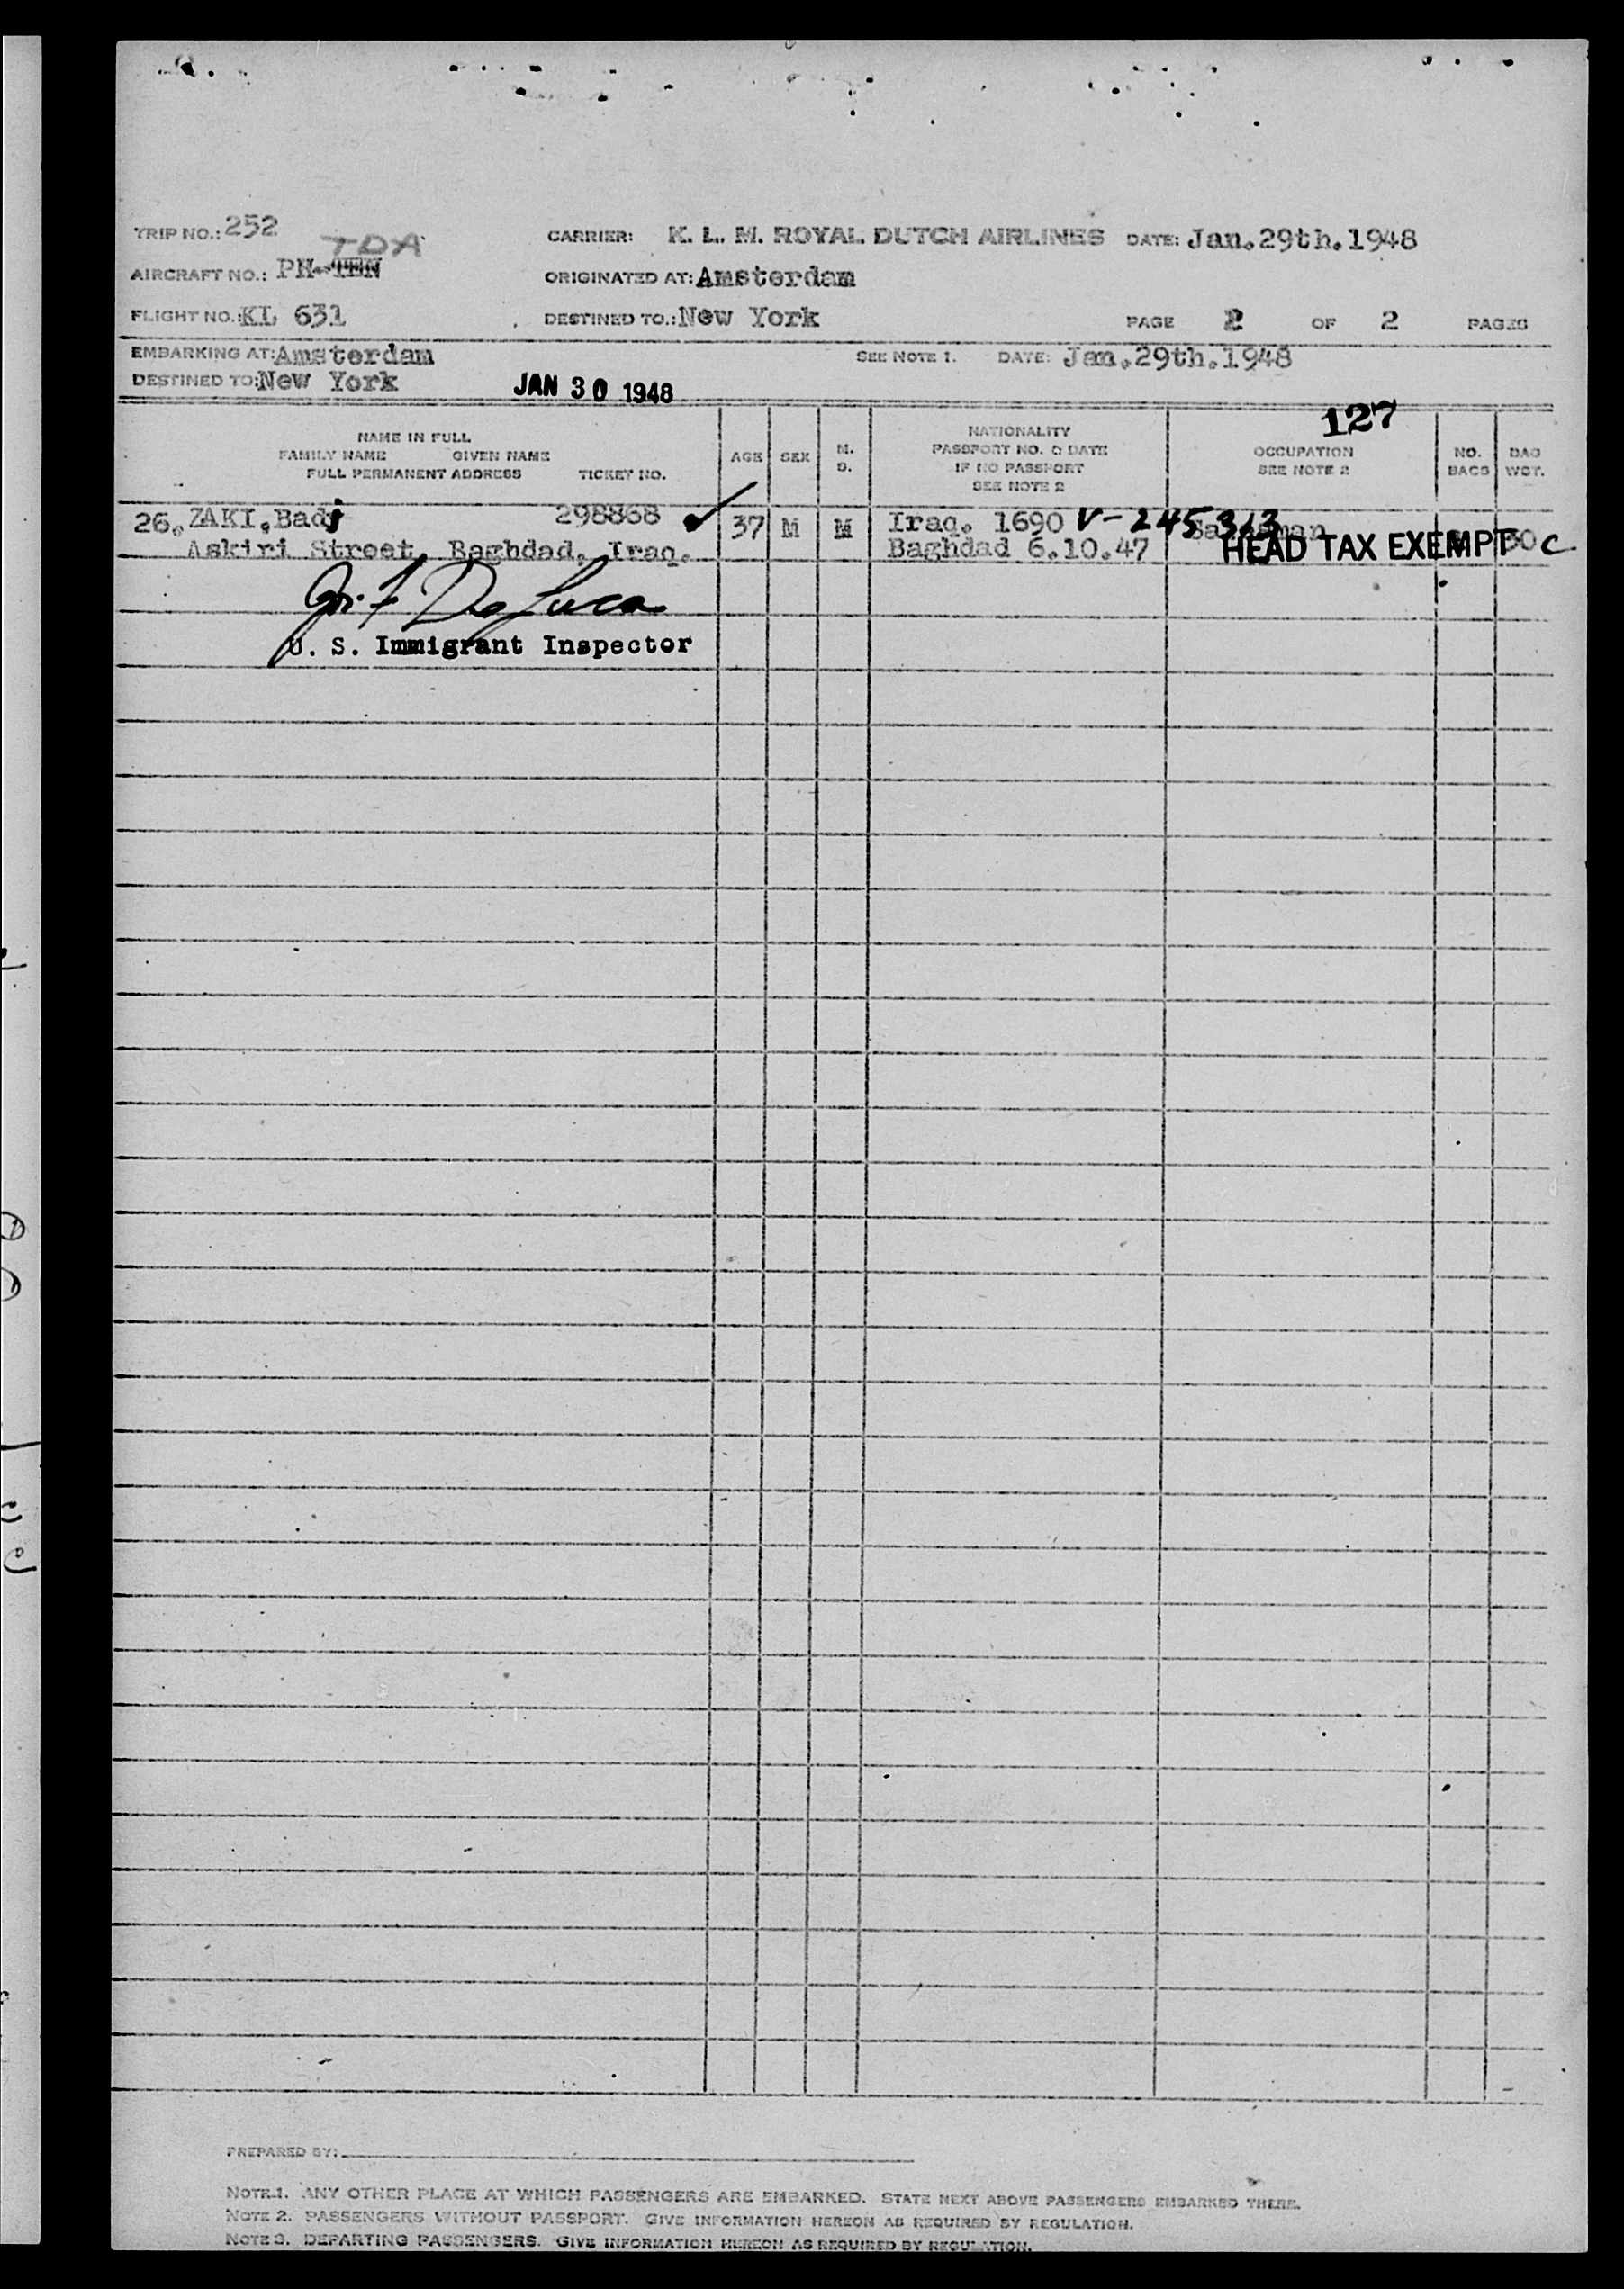 TRIP NO.: 252
TDA
CARRIER: K. L. M. ROYAL DUTCH AIRLINES DATE: Jan.29th.1948
AIRCRAFT NO.: PH-TEN
ORIGINATED AT: Amsterdam
FLIGHT NO.: KL 631
DESTINED TO.: New York
PAGE 2 OF 2 PAGES
EMBARKING AT: Amsterdam
SEE NOTE 1. DATE: Jan.29th.1948
DESTINED TO: New York
JAN 30 1948
127
NAME IN FULL
FAMILY NAME GIVEN NAME
FULL PERMANENT ADDRESS TICKET NO.
AGE
SEX
M.
S.
NATIONALITY
PASSPORT NO. & DATE
IF NO PASSPORT
SEE NOTE 2
OCCUPATION
SEE NOTE 2
NO.
BAGS
BAG
WGT.
26. ZAKI, Badj 298868 37 M M Iraq. 1690 V-245313
Askiri Street, Baghdad, Iraq. Baghdad 6.10.47 HEAD TAX EXEMPT C
De Luca
U. S. Immigrant Inspector
PREPARED BY:
NOTE 1. ANY OTHER PLACE AT WHICH PASSENGERS ARE EMBARKED. STATE NEXT ABOVE PASSENGERS EMBARKED THERE.
NOTE 2. PASSENGERS WITHOUT PASSPORT. GIVE INFORMATION HEREON AS REQUIRED BY REGULATION.
NOTE 3. DEPARTING PASSENGERS. GIVE INFORMATION HEREON AS REQUIRED BY REGULATION.